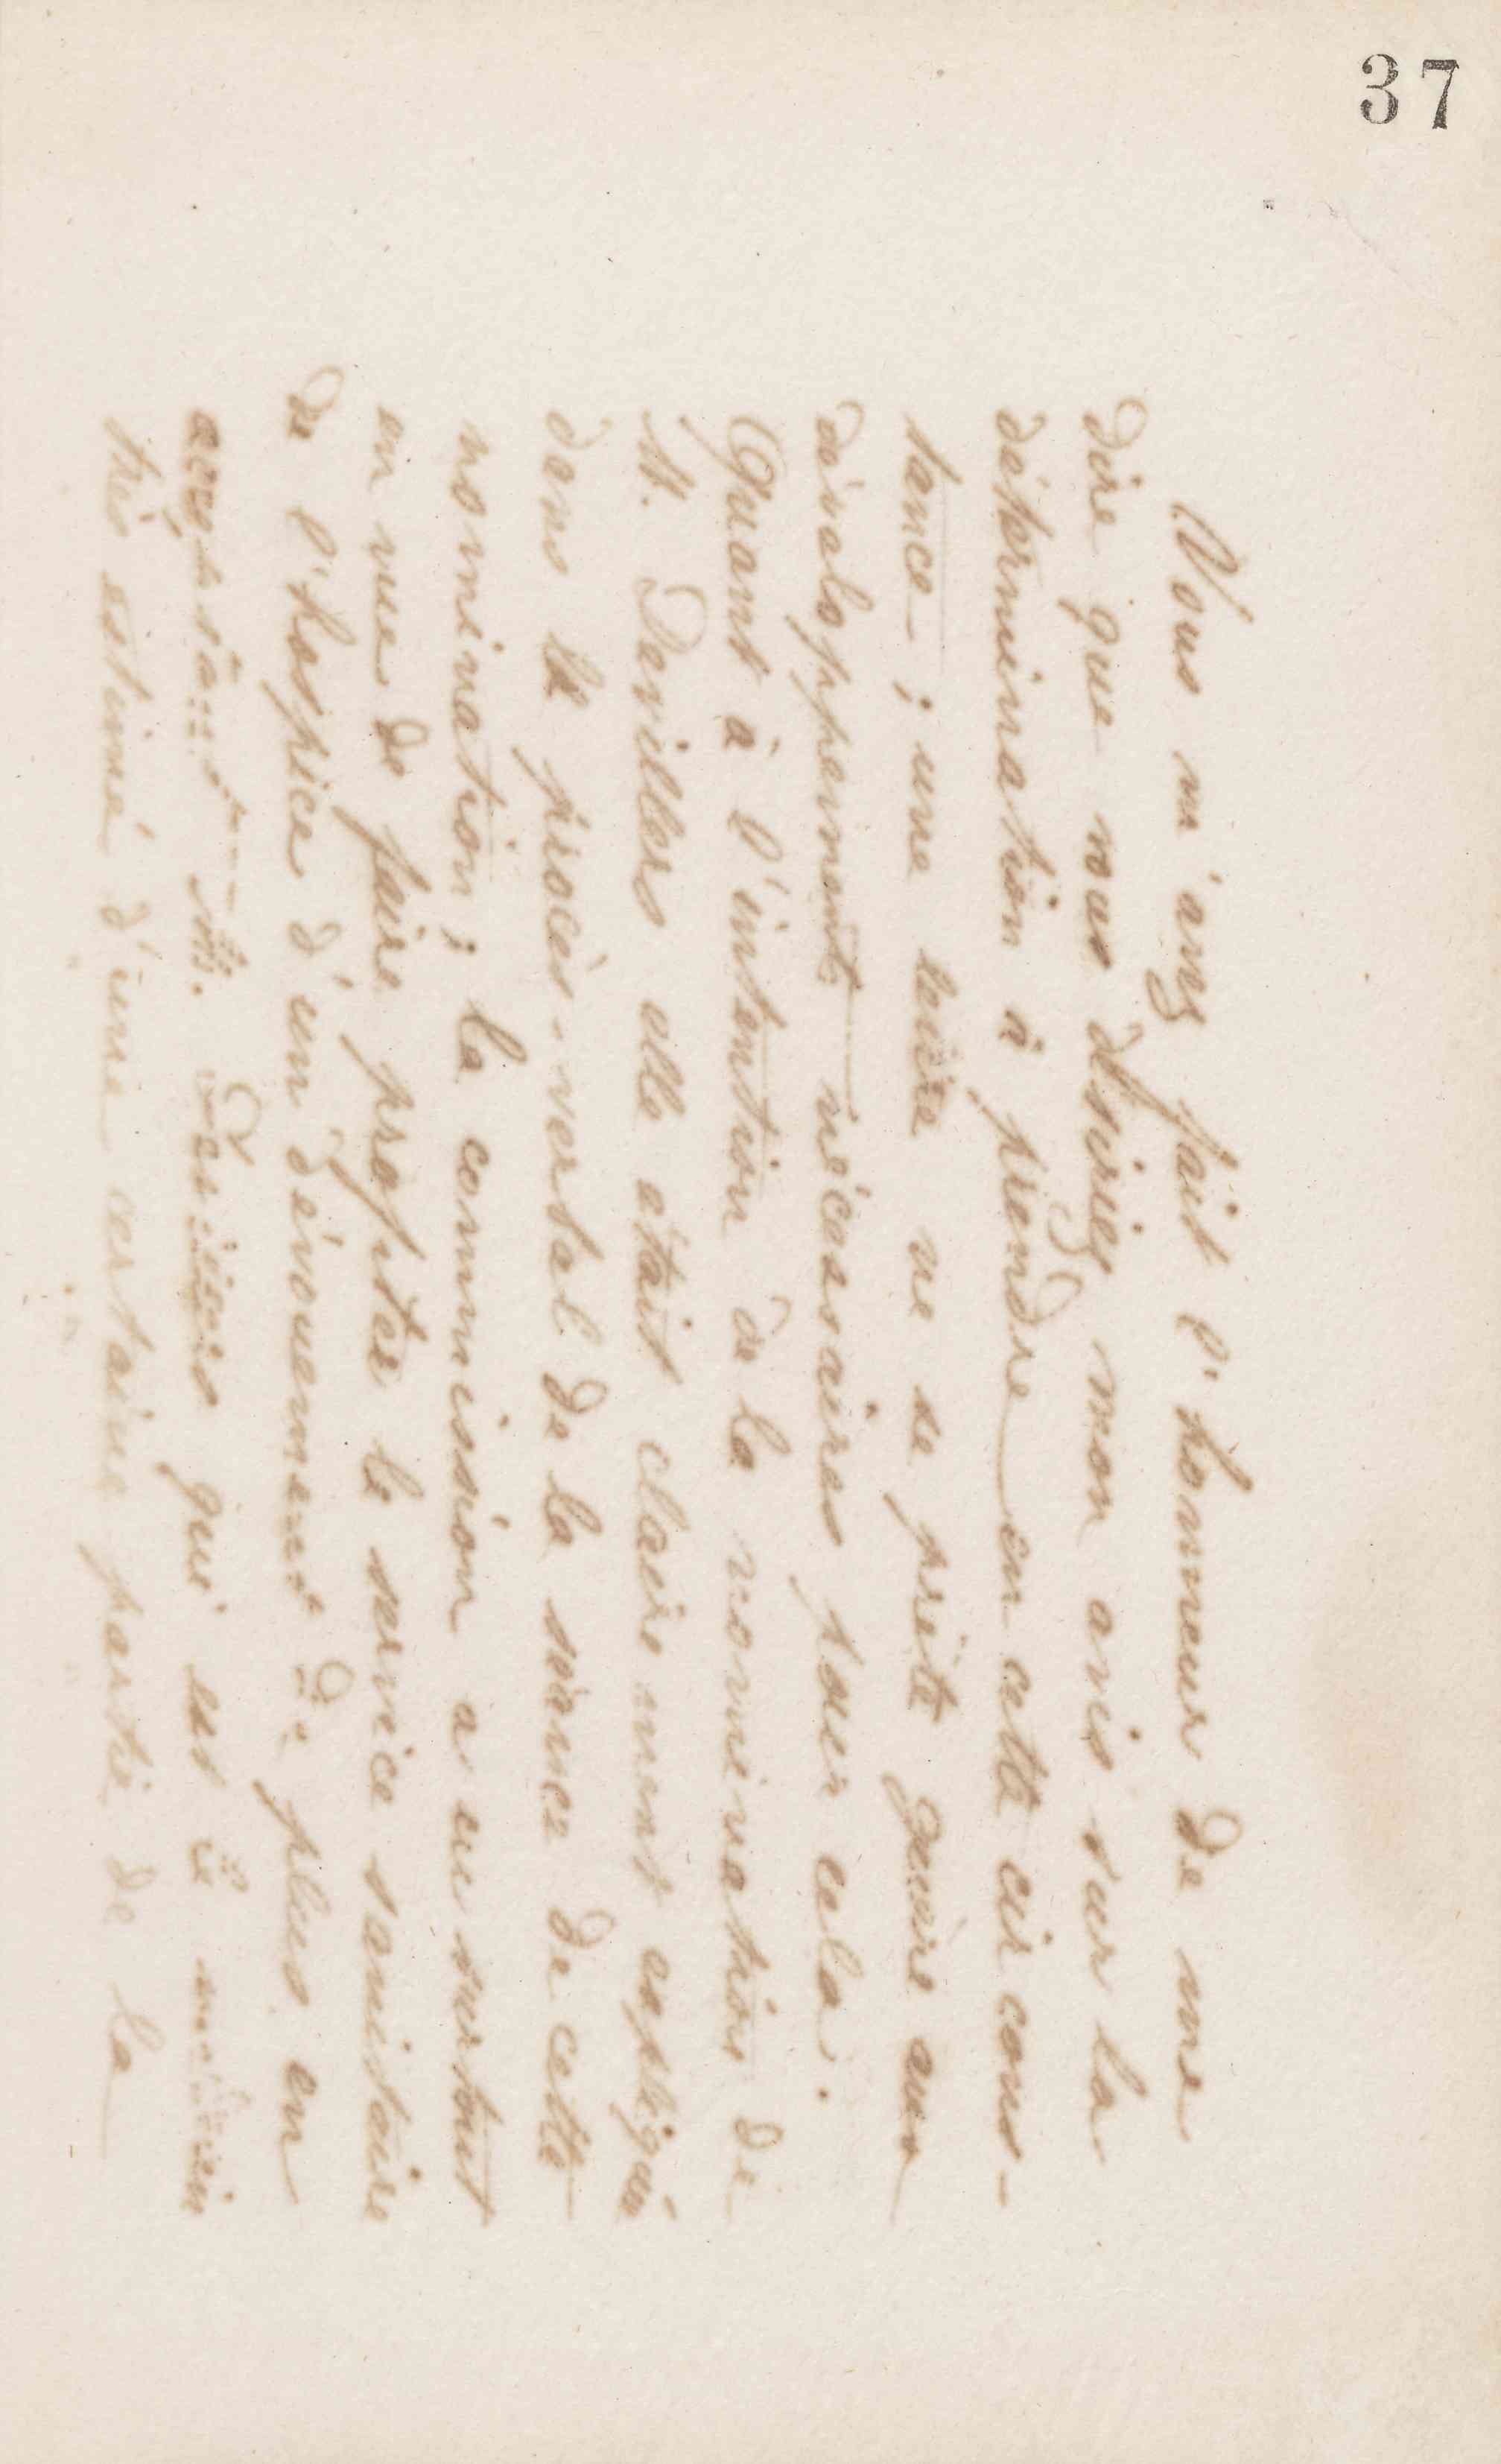 37
Vous m'avez fait l'honneur de me
dire que vous désiriez mon avis sur la
détermination à prendre en cette circons-
tance ; une lettre ne se prête guère aux
développements nécessaires pour cela.
Quant à l'intention de la nomination de
M. Devillers elle était clairement expliquée
dans le procès-verbal de la séance de cette
nomination ; la commission a eu surtout
en vue de faire profiter le service sanitaire
de l'hospice d'un dévouement de plus en
acceptant M. Devillers qui est le médecin
très estimé d'une certaine partie de la